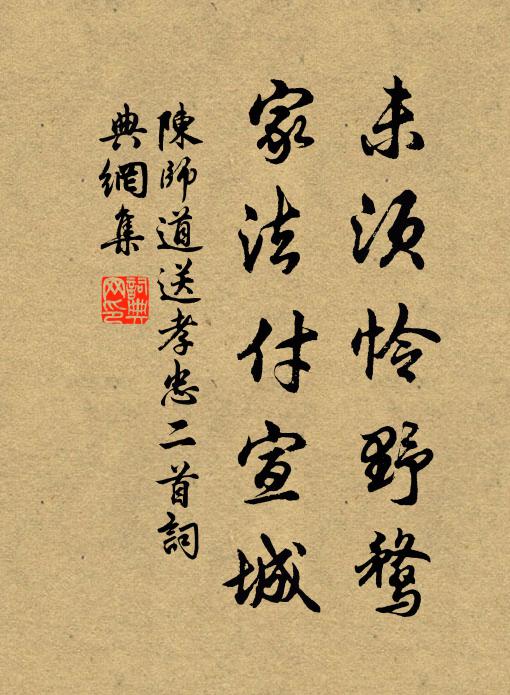 未须怜野鹜
家法付宣城
陳師道送孝忠二首詞
典網集
詞典網印